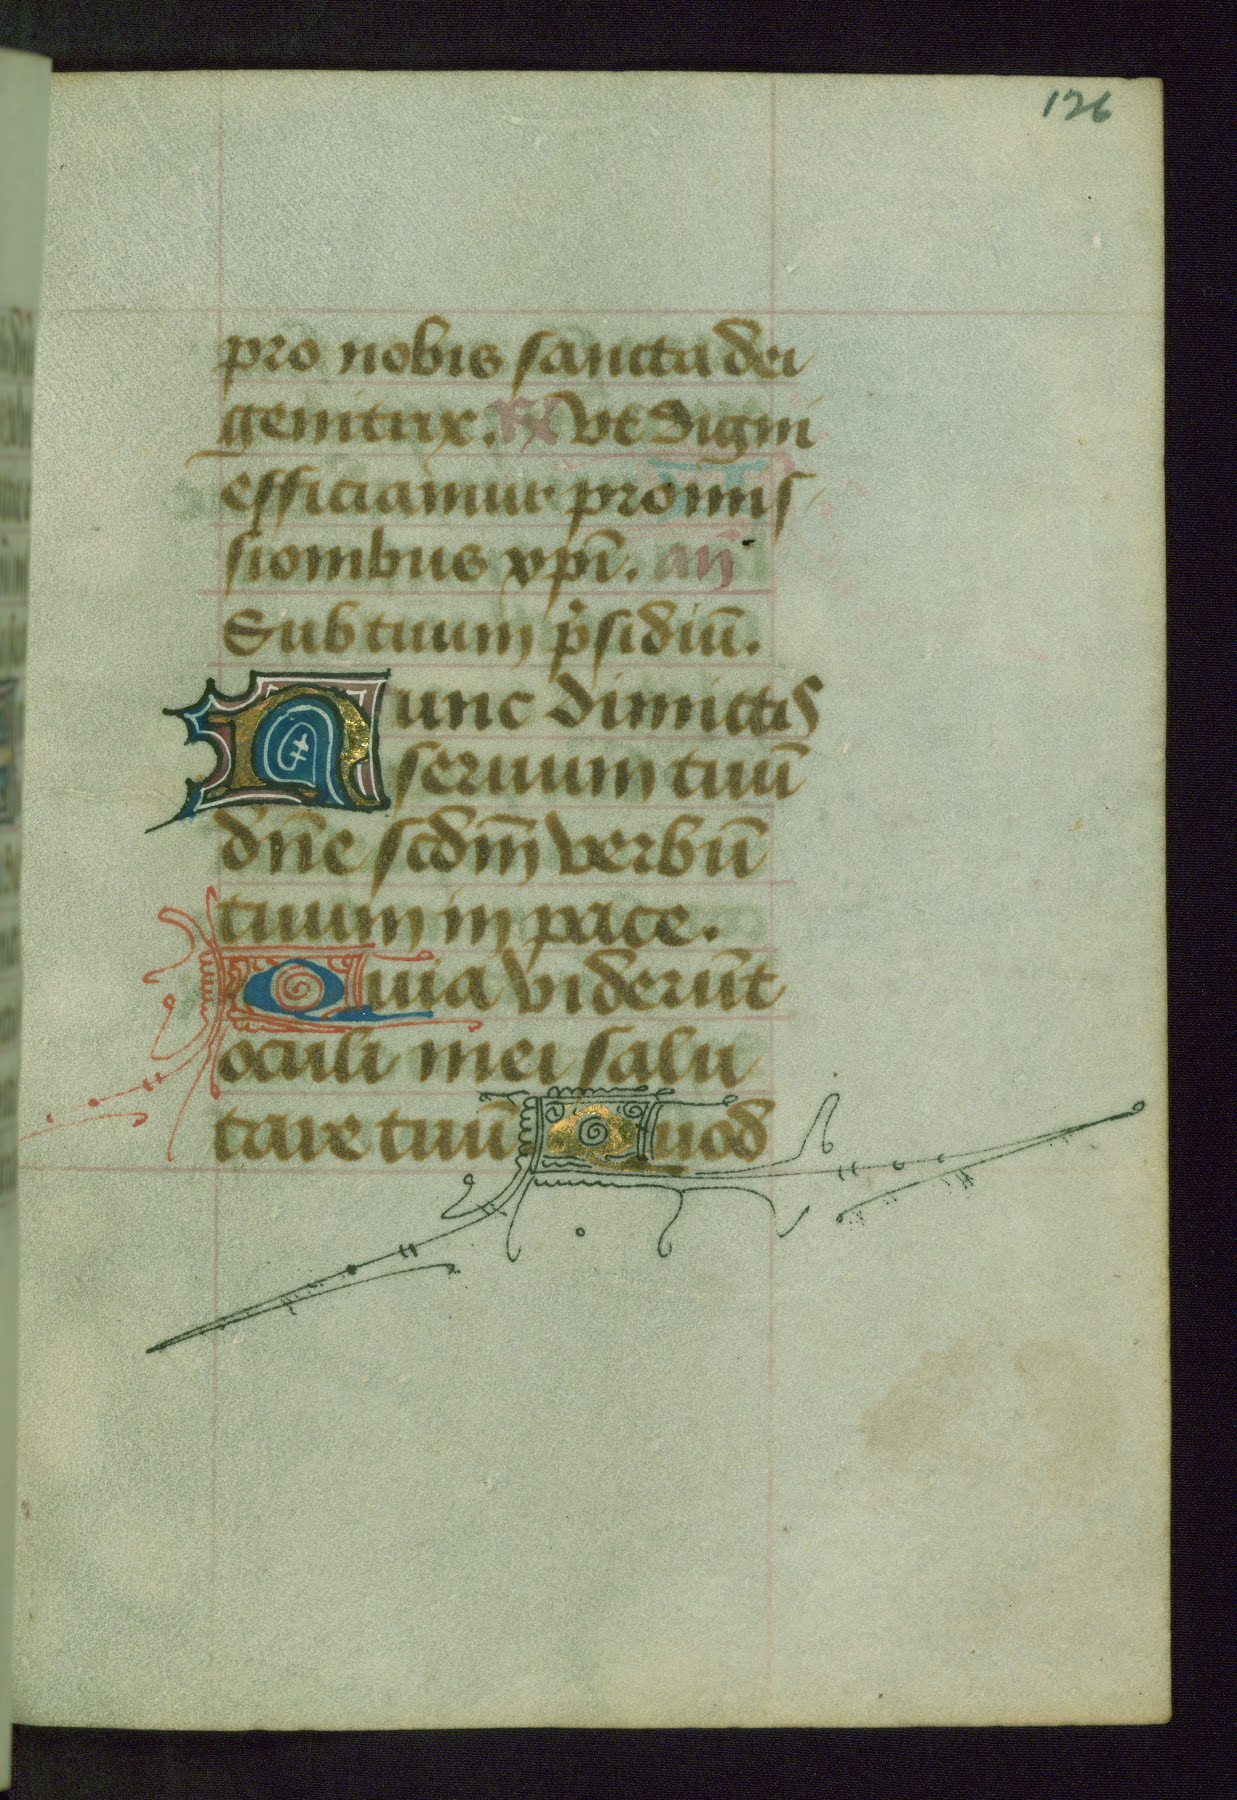 126
pro nobis sancta dei
genitrix. ℟ Ut digni
efficiamur promis
sionibus xpī. añ
Sub tuum p̄sidiū.
Nunc dimictis
seruum tuū
dn̄e scdm̄ verbū
tuum in pace.
Quia viderūt
oculi mei salu
tare tuū Quod